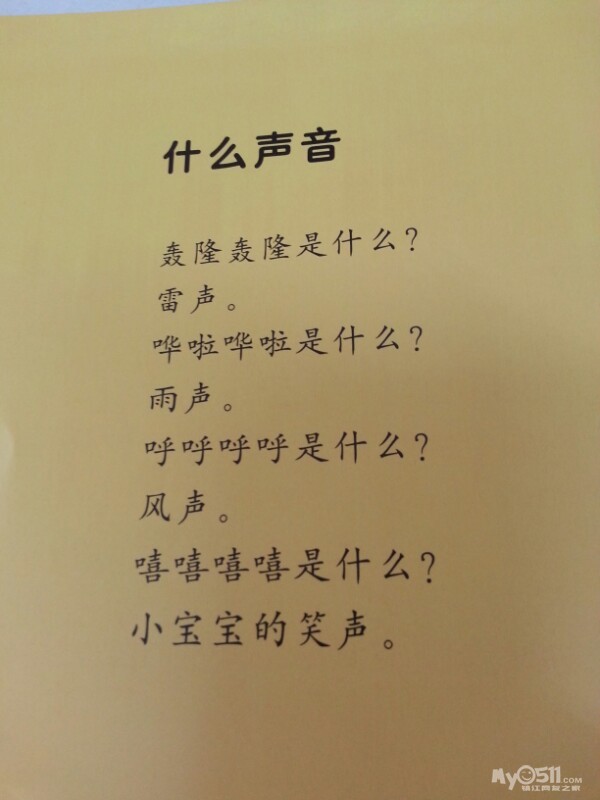 什么声音
轰隆轰隆是什么?
雷声。
哗啦哗啦是什么?
雨声。
呼呼呼呼是什么?
风声。
嘻嘻嘻嘻是什么?
小宝宝的笑声。
My0511.com
镇江网友之家